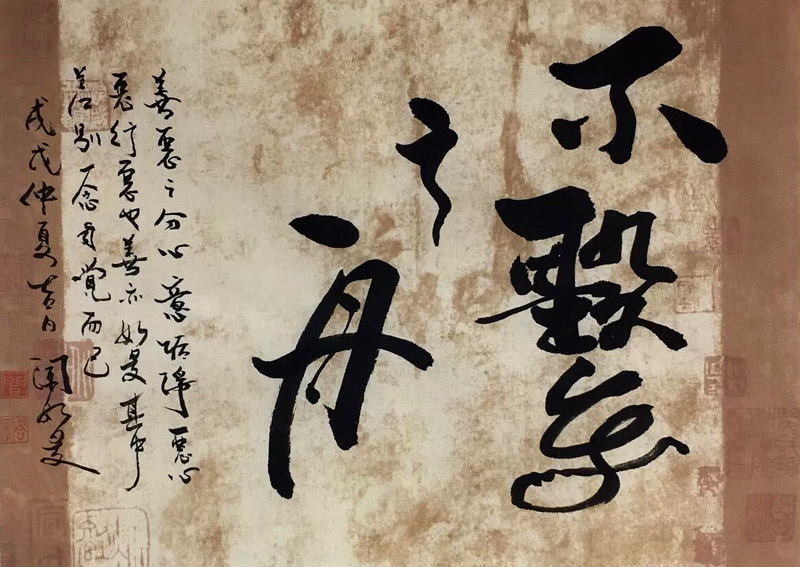 不繫
之舟
善惡之分心意垢淨惡心
惡行惡也善亦如是其中
差別一念自覺而已
戊戌仲夏吉日聞如是